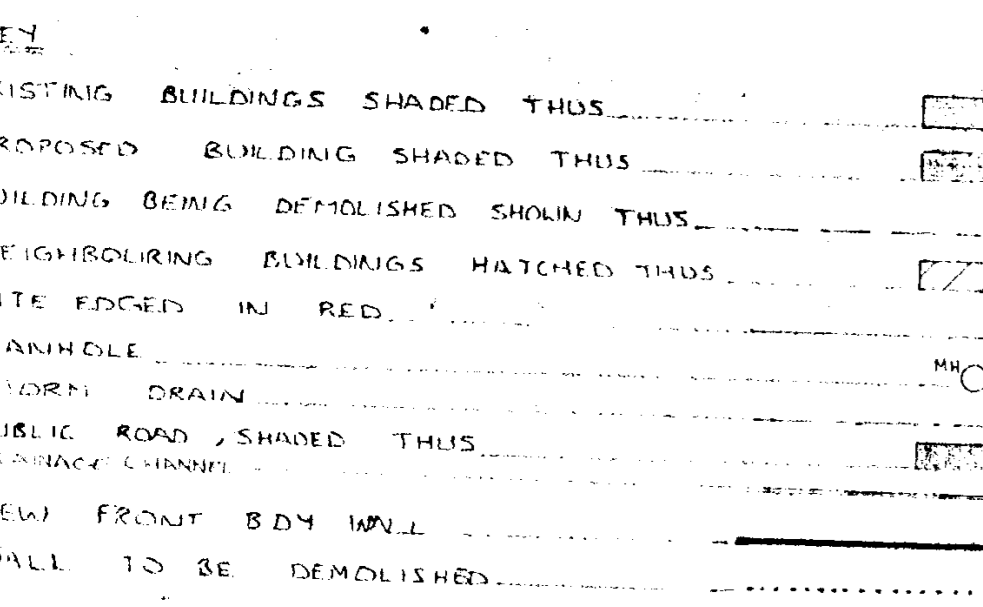 EY
XISTING BUILDINGS SHADED THUS
ROPOSED BUILDING SHADED THUS
UILDING BEING DEMOLISHED SHOWN THUS
EIGHBOURING BUILDINGS HATCHED THUS
ITE EDGED IN RED
ANHOLE MH
TORM DRAIN
UBLIC ROAD, SHADED THUS
RAINAGE CHANNEL
EW FRONT BDY WALL
ALL TO BE DEMOLISHED